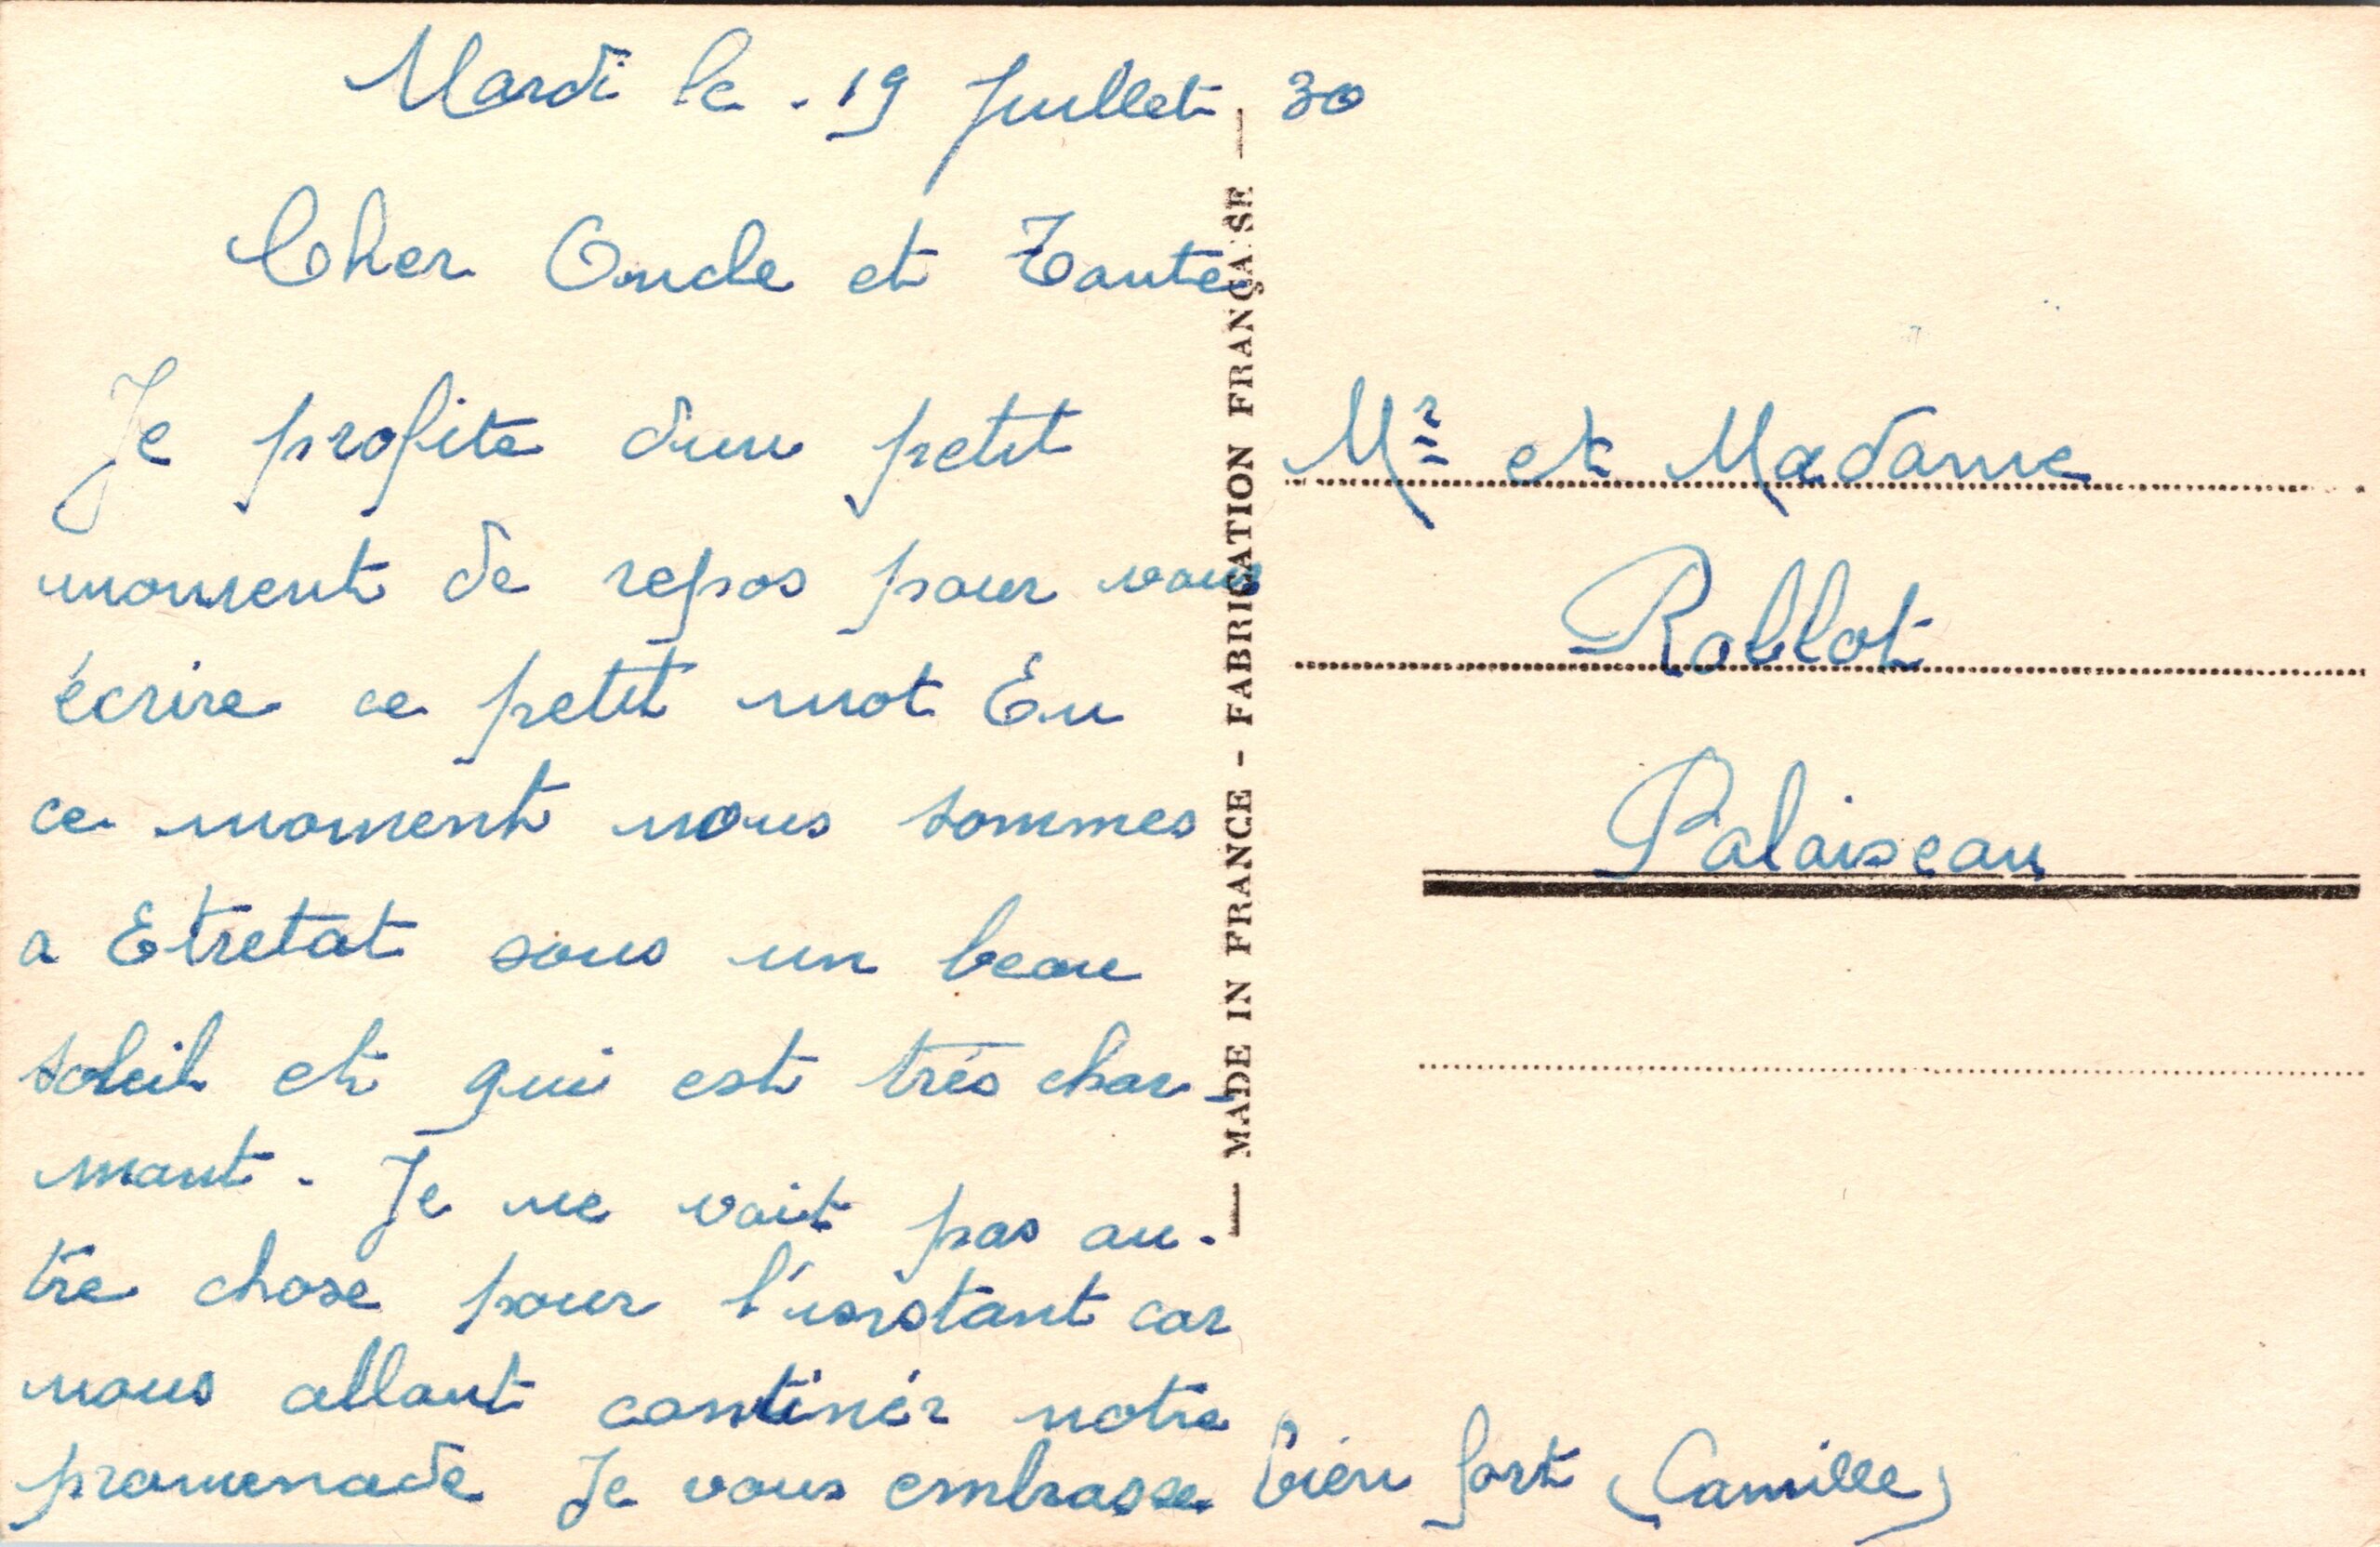 Mardi le . 19 Juillet 30
Cher Oncle et Tante
Je profite d'un petit
moment de repos pour vous
écrire ce petit mot En
ce moment nous sommes
a Etretat sous un beau
soleil et qui est trés char-
mant. Je ne voit pas au-
tre chose pour l'instant car
nous allont continér notre
promenade Je vous embrasse bien fort (Camille)
MADE IN FRANCE - FABRICATION FRANÇAISE
Mr et Madame
Rollot
Palaiseau